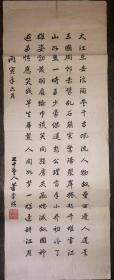 大江東去浪淘盡千古風流人物故壘西邊人道是
三國周郎赤壁亂石崩雲驚濤裂岸捲起千堆雪江
山如畫一時多少豪傑遙想公瑾當年小喬初嫁了
雄姿英發羽扇綸巾談笑間強虜灰飛煙滅故國神
遊多情應笑我早生華髮人間如夢一樽還酹江月
寅年六月